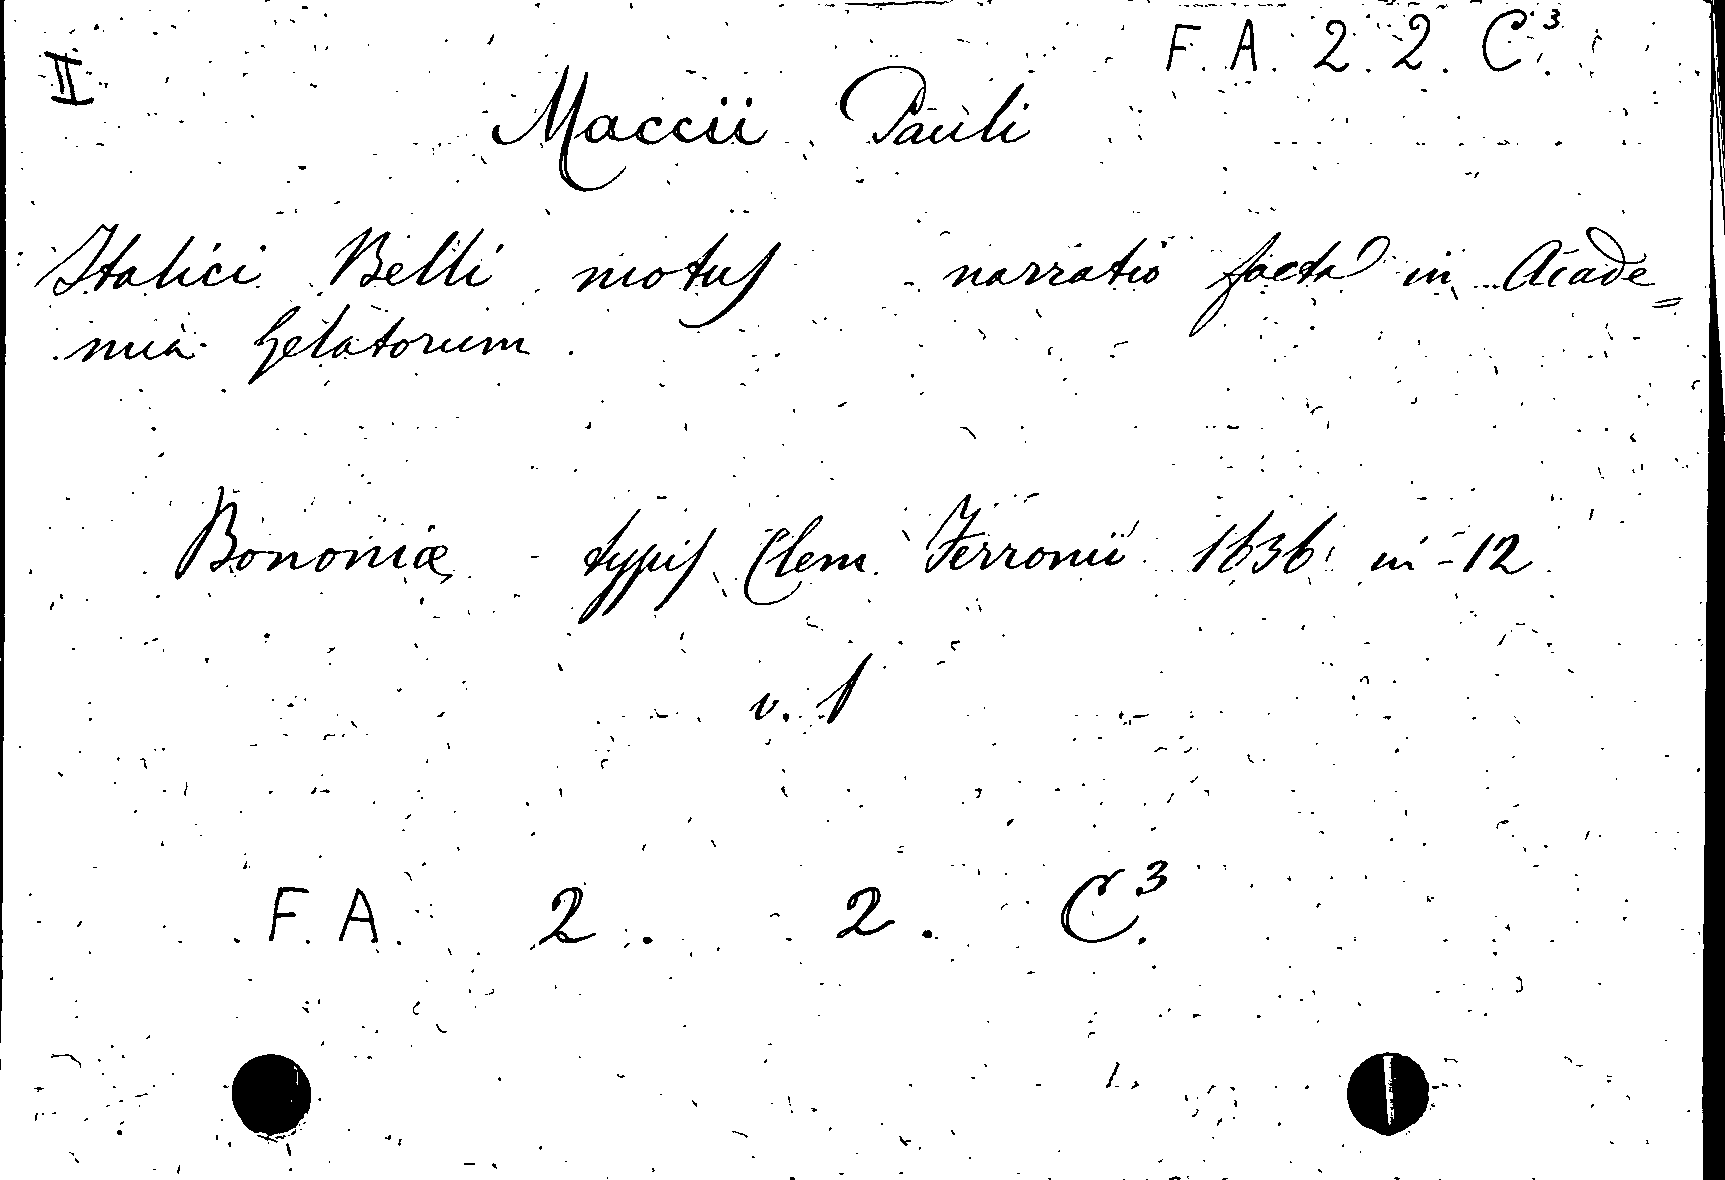 F. A. 2. 2. C³.
II
Maccii Pauli
Italici Belli motus narratio facta in Acade=
mia Gelatorum
Bononiæ typis Clem. Ferronii 1636 in-12
v. 1
F. A. 2. 2. C³.